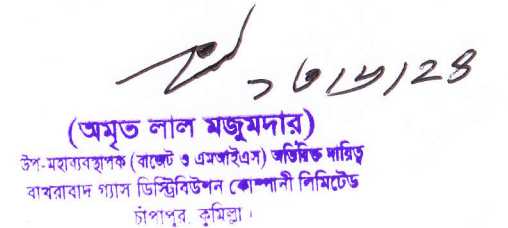 ১৩/৮/২৪
(অমৃত লাল মজুমদার)
উপ-মহাব্যবস্থাপক (বাজেট ও এমআইএস) অতিরিক্ত দায়িত্ব
বাখরাবাদ গ্যাস ডিস্ট্রিবিউশন কোম্পানী লিমিটেড
চাঁপাপুর, কুমিল্লা।